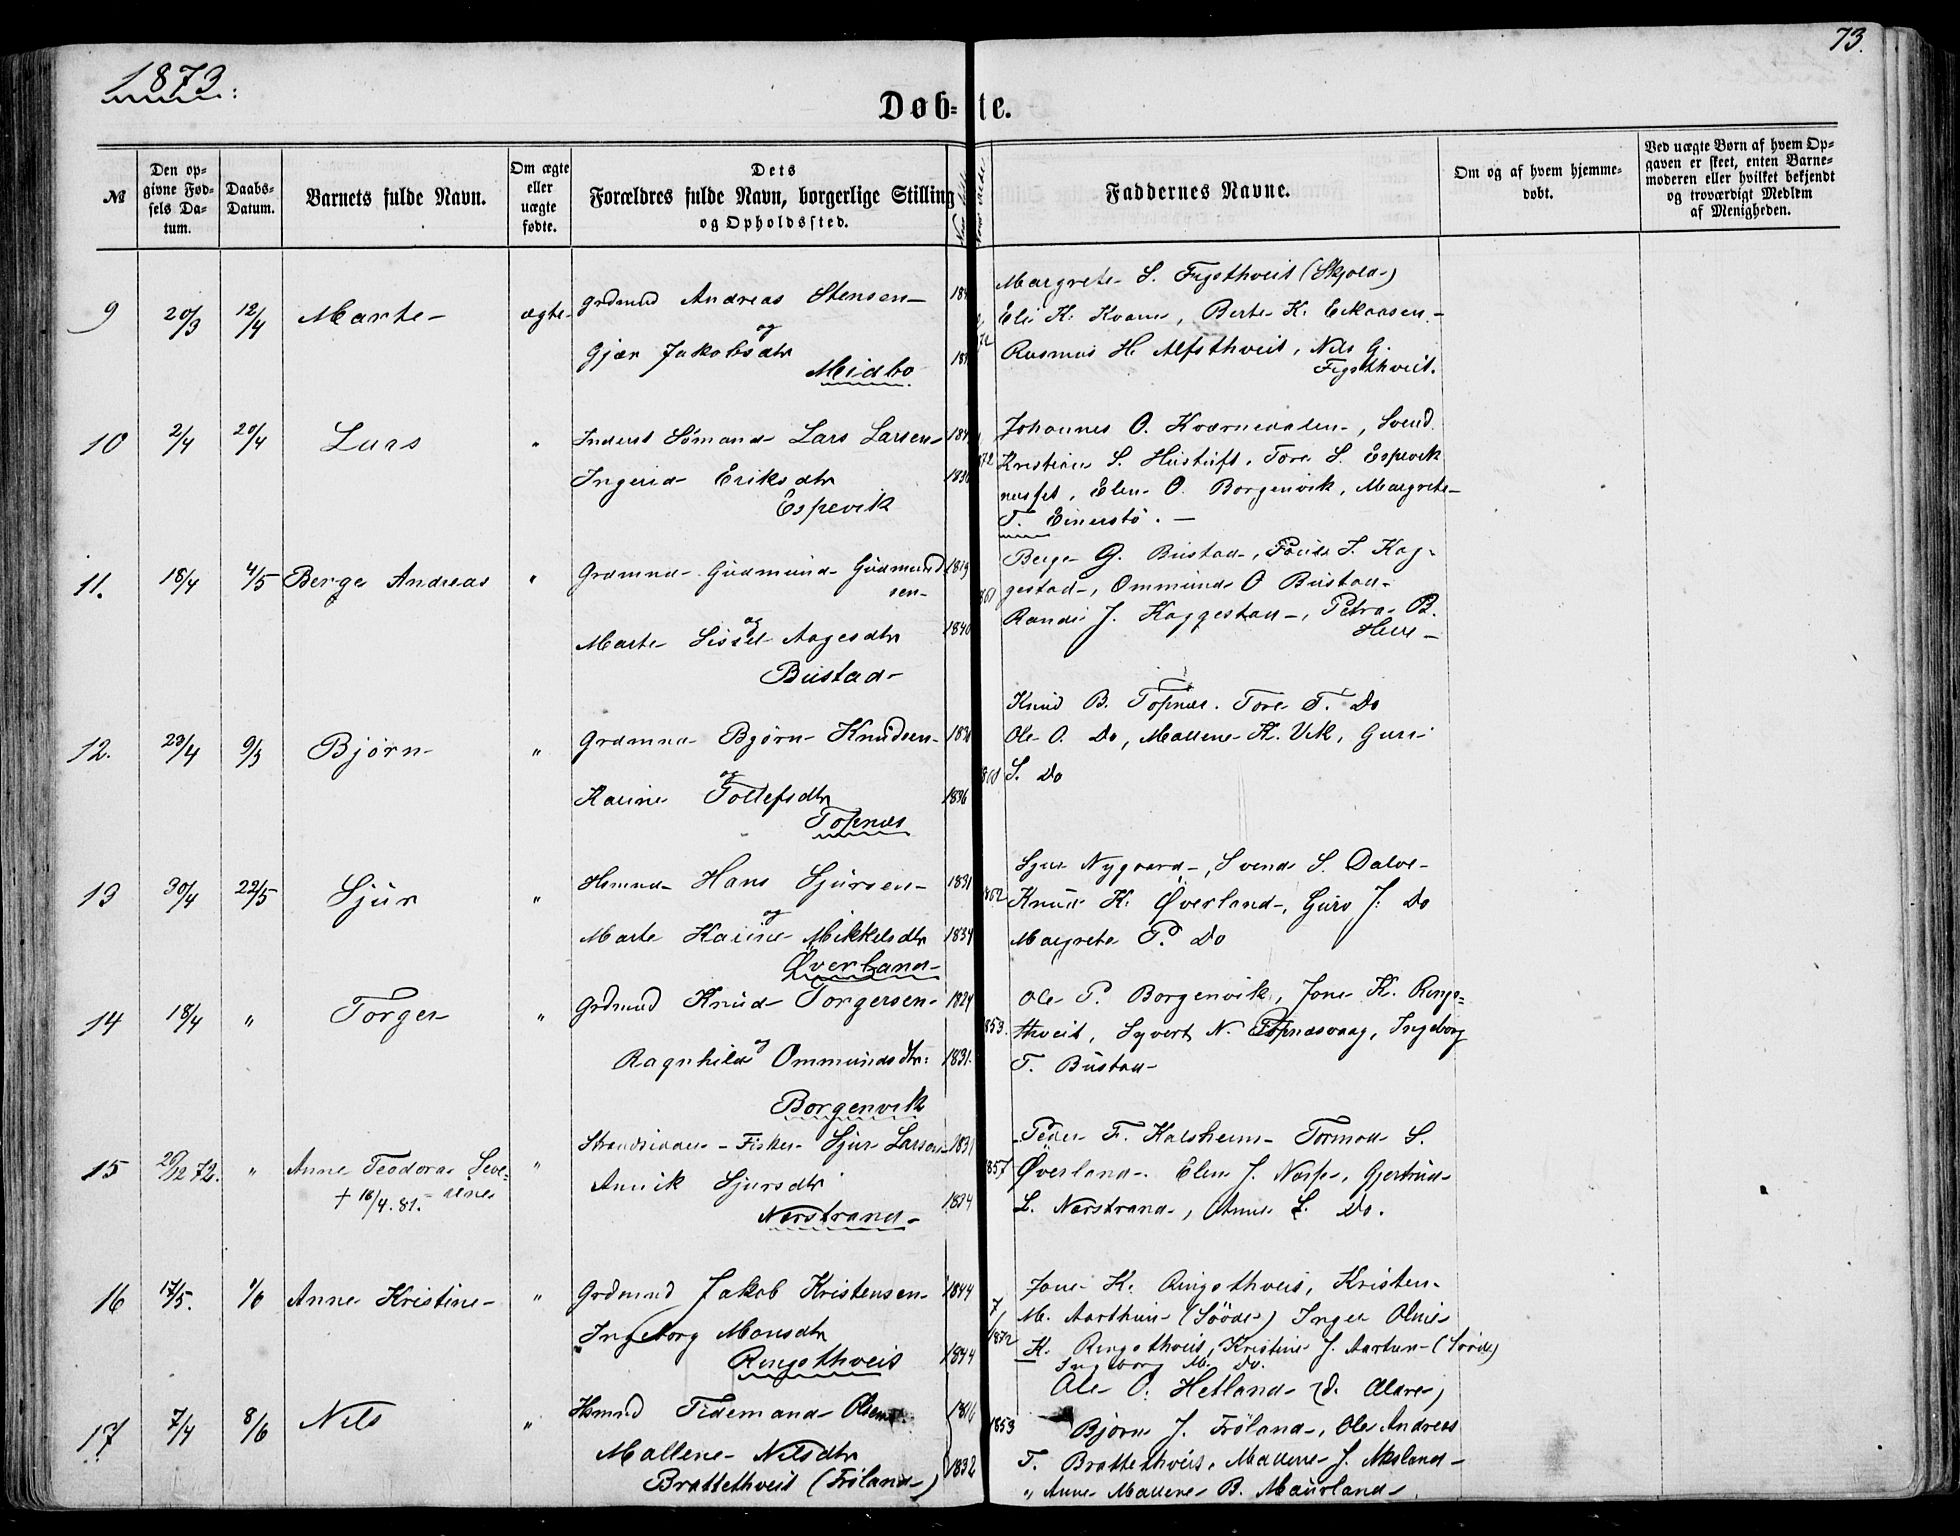 1873.
73.
Døb=te.
№
Den op-
givne Fød-
sels Da-
tum.
Daabs-
Datum.
Barnets fulde Navn.
Om ægte
eller
uægte
fødte.
Dets
Forældres fulde Navn, borgerlige Stilling
og Opholdssted.
Faddernes Navne.
Om og af hvem hjemme-
døbt.
Ved uægte Børn af hvem Op-
gaven er skeet, enten Barne-
moderen eller hvilket bekjendt
og troværdigt Medlem
af Menigheden.
9 20/3 12/4 Marte ægte
Grdmnd Andreas Stensen
og
Gjær Jakobsdtr
Midbo
Margrete S. Figsthveit (Skjold)
Eli K. Kvame, Berte K. Eikaasen
Rasmus H. Alfsthveit, Nils G.
Figsthveit.
10 2/4 20/4 Lars "
Inderst Sømand Lars Larsen
Ingerid Eriksdtr 1830
Espevik
Johannes O. Kværnedalen, Svend
Kristian S. Hustuft, Tore S. Espevik
næset, Elen O. Borgenvik, Margrete
T. Einerstø.
11. 18/4 4/5 Berge Andreas "
Grdmnd Gudmund Gudmund 1819
sen
og
Marte Sissel Aagesdtr 1840
Bustad
Berge G. Bustad, J. Kag-
gestad, Ommund O Bustad
Randi J. Kaggestad, Petra B.
12. 23/4 9/3 Bjørn "
Grdmnd Bjørn Knudsen
og
Karine Tollefsdtr 1836
Topnæs
Knud B. Topnæs. Tore T. Do
Ole O. Do, Mallene K. Vik, Guri
S. Do
13 30/4 22/5 Sjur "
Hsmnd Hans Sjursen 1831
og
Marte Karine Mikkelsdtr 1834
Øverland
Sjur Nygaard, Svend S. Dalve
Knud K. Øverland, Guro J. Do
Margrete P. Do
14 18/4 " Torger "
Grdmnd Knud Torgersen 1824
og
Ragnhild Ommundsdtr: 1831.
Borgenvik
Ole P. Borgenvik, Jone K. Rings-
1853. thveit, Syvert N. Topnæsvaag, Ingeborg
T. Bustad
15 20/12 72. " Anne Teodora Seve- "
rine
† 16/4. 81.
Strandsidder Fisker Sjur Larsen 1831
Annik Sjursdtr 1834
Nærstrand
Peder F. Kalsheim Tormod S.
1857 Øverland. Elen J. Næsse, Gjertrud
L. Nærstrand, Anne L. Do.
16 17/5. 1/6 Anne Kristine "
Grdmnd Jakob Kristensen 1844
Ingeborg Monsdtr
Ringsthveit 1844
7/1872
Jone K. Ringsthveit, Kristen
M. Aarthun (Søvde) Inger Oline
K. Ringsthveit, Kristine J. Aartun (Søvde)
Ingeborg M. Do.
17 7/4 8/6 Nils "
Hsmnd Tidemand Olsen 1816
Mallene Nilsdtr
Brattethveit (Frøland) 1832
1853
Ole O. Hetland
Bjørn J. Frøland, Ole Andreas
T. Brattethveit, Mallene J. Aksland
" Anne Mallene B. Maurland